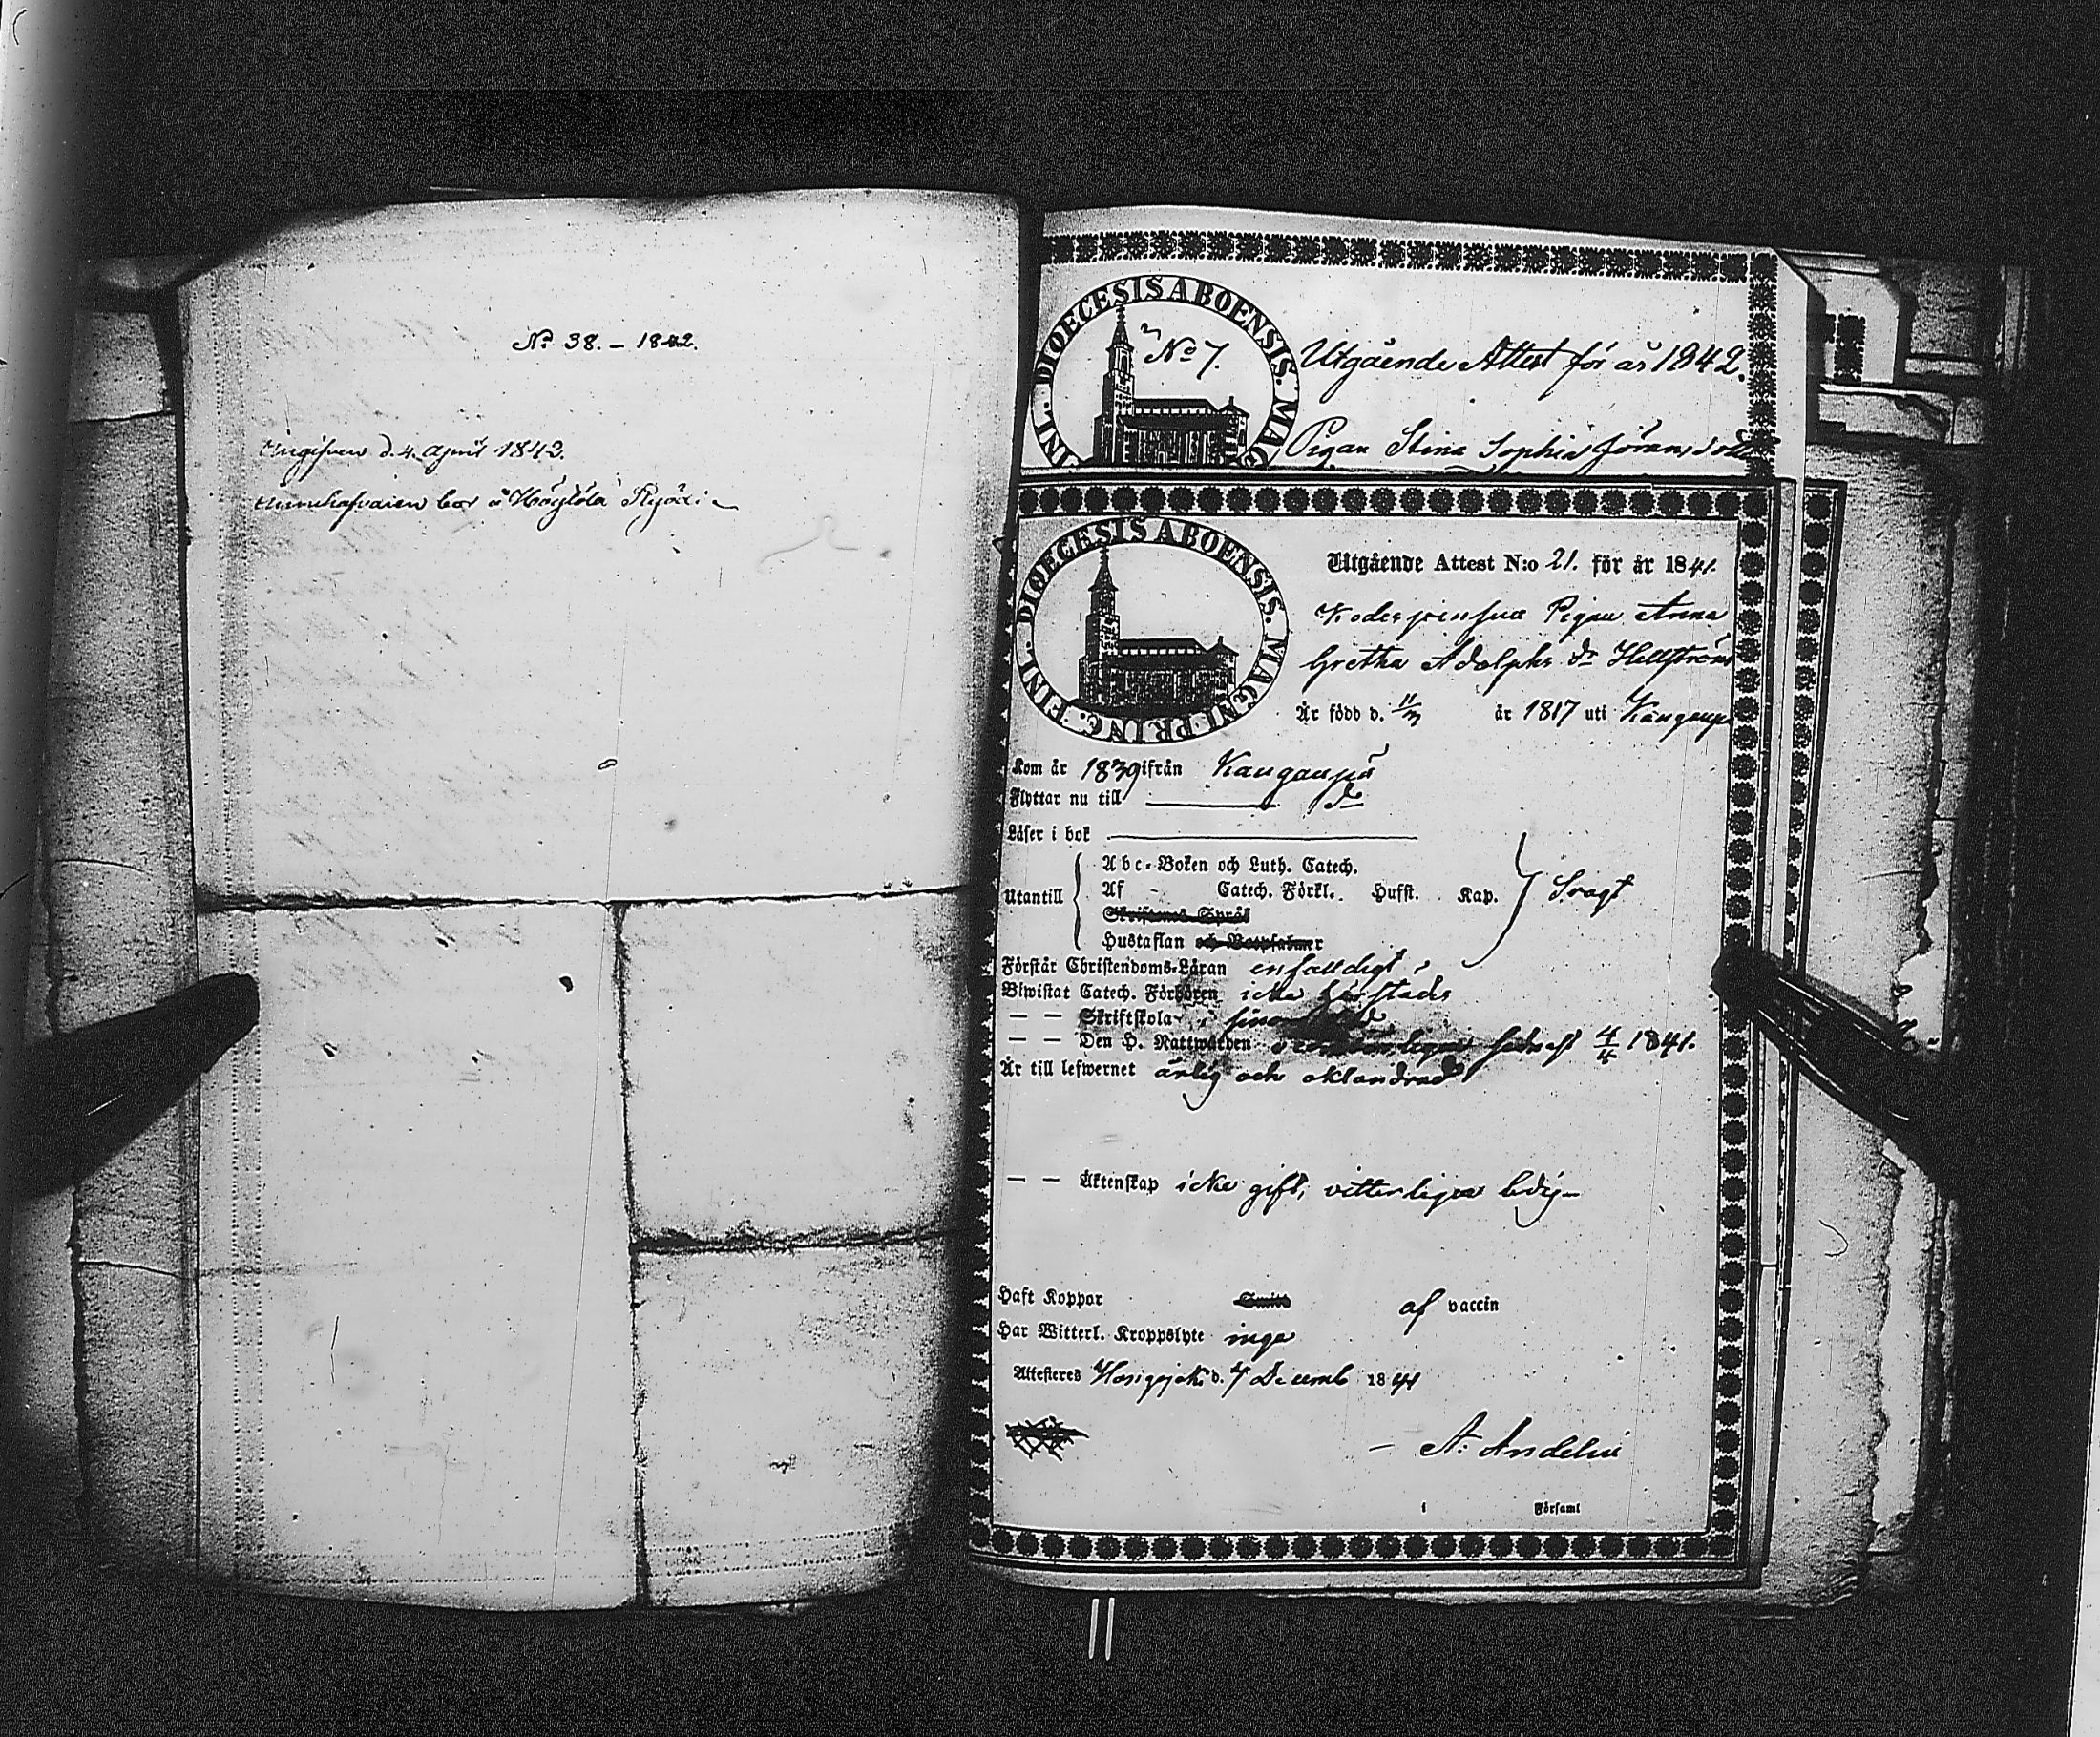 No 38. – 1842.
d. 4 April 1842.
DIOECESIS ABOENSIS. MAG
INL.
No 7.
Utgående Attest för år 1842.
Pigan Stina Sophia Jöransdotter
DIOECESIS ABOENSIS. MAGNI PRINC. FINL.
Utgående Attest N:o 21. för år 1841.
Pigan Anna
Gretha Adolphs dr Hellström
Är född d. 11/3 år 1817 uti
Kom år 1839 ifrån
Flyttar nu till do
Läser i bok
Utantill
Abc-Boken och Luth. Catech.
Af - Catech. Förkl. Husst. Kap. Svagt
Skriftenes Språk
Hustaflan och Botpsalmer
Förstår Christendoms-Läran enfalldigt
Biwistat Catech. Förhören icke härstädes
— — Skriftskola
— — Den H. Nattwarden sednast 4/4 1841.
Är till lefwernet ärlig och oklandrad
— — Äktenskap icke gift, vitterligen ledig
Haft Koppor af vaccin
Har Witterl. Kroppslyte inga
Attesteras d. 7 Decemb 1841
A: Andelin
i Församl